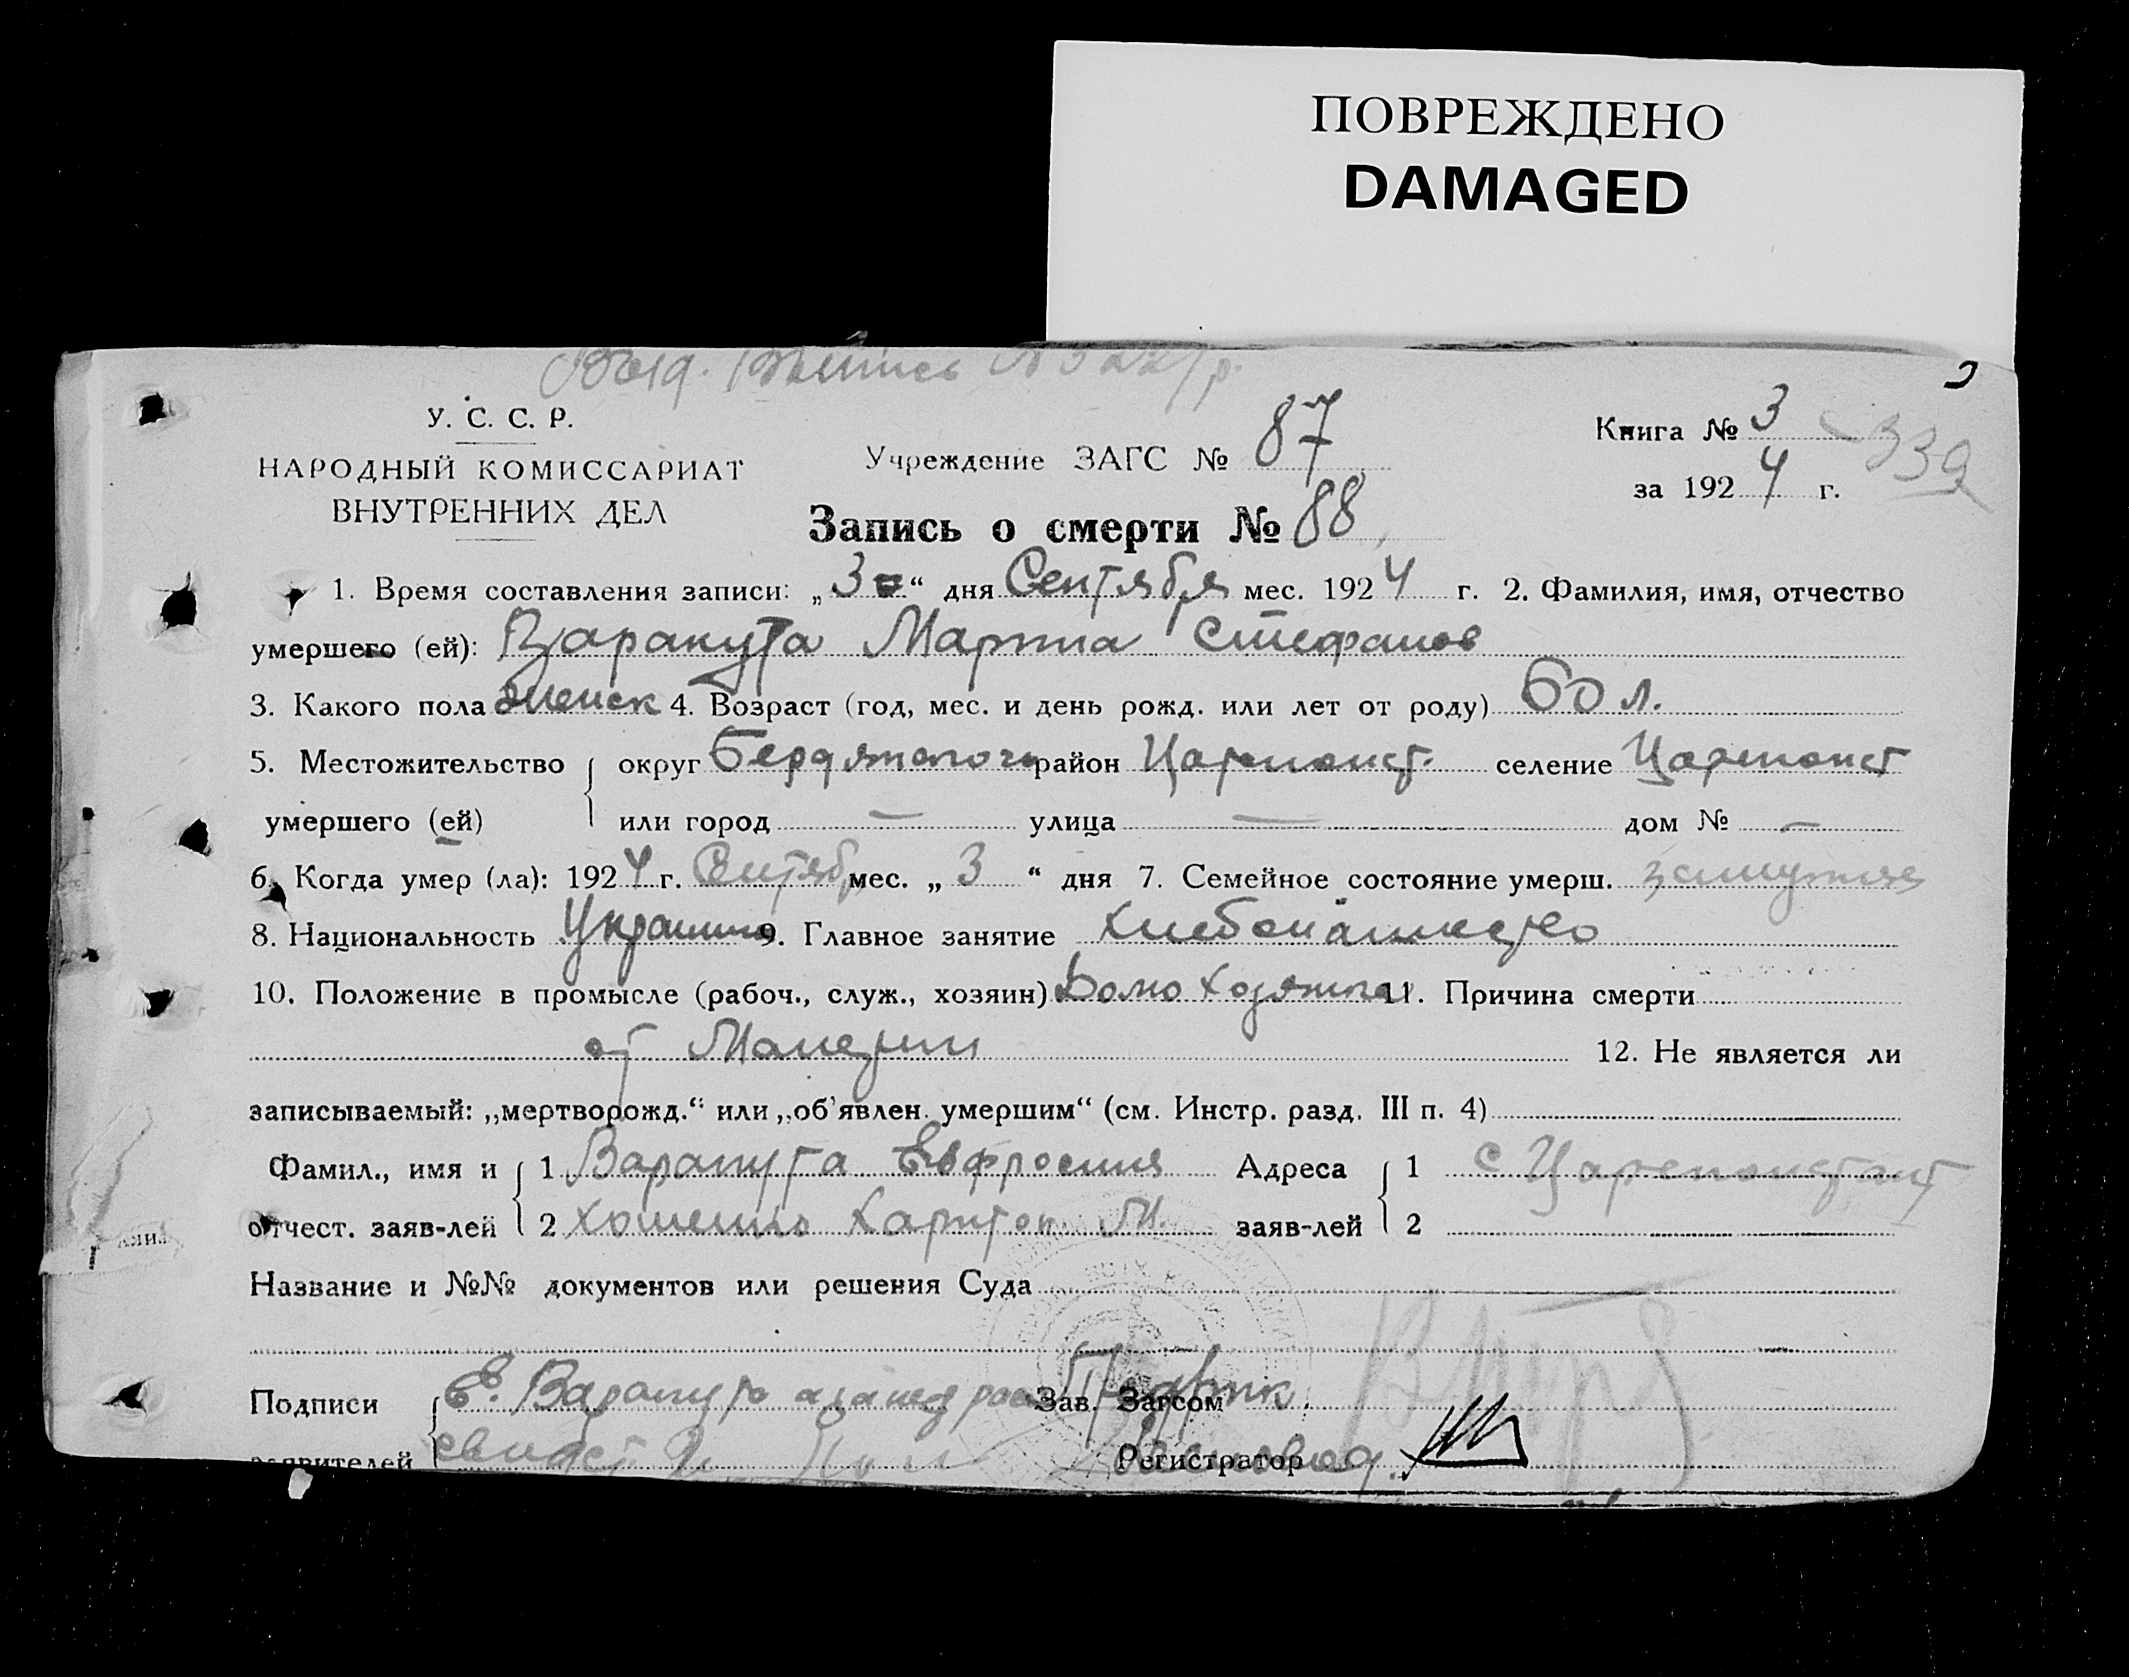 ПОВРЕЖДЕНО
DAMAGED
У. С. С. Р.
НАРОДНЫЙ КОМИССАРИАТ
ВНУТРЕННИХ ДЕЛ
Учреждение ЗАГС № 87
Книга № 3
339
за 1924 г.
Запись о смерти № 88
1. Время составления записи: „3“ дня Сентября мес. 1924 г. 2. Фамилия, имя, отчество
умершего (ей): Варакута Марта Стефанов
3. Какого пола женск 4. Возраст (год, мес. и день рожд. или лет от роду) 60 л.
5. Местожительство округ район Цареконст. селение Цареконст
умершего (ей) или город — улица — дом № —
6. Когда умер (ла): 1924 г. Сентябр мес. „3“ дня 7. Семейное состояние умерш. замужняя
8. Национальность 9. Главное занятие
10. Положение в промысле (рабоч., служ., хозяин) 11. Причина смерти
от
12. Не является ли
записываемый: „мертворожд.“ или „об'явлен. умершим“ (см. Инстр. разд. III п. 4)
Фамил., имя и 1 Варакута Евфросиния Адреса 1 с Цареконстант
отчест. заяв-лей 2 Харитон М. заяв-лей 2
Название и №№ документов или решения Суда
Подписи Е. Варакута Зав. Загсом
заявителей Регистратор